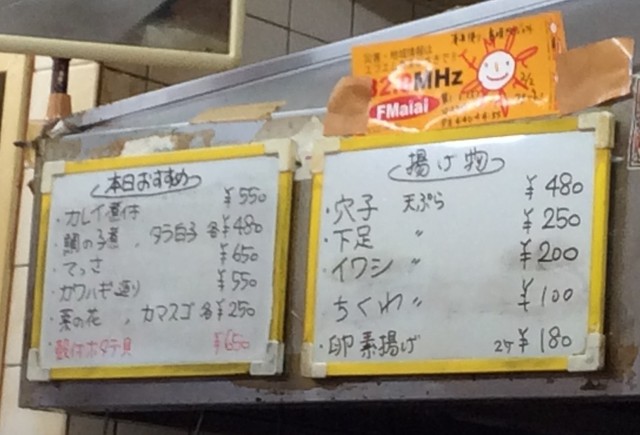 本日おすすめ
・カレイ煮付 ¥550
・鯛の子煮、タラ白子 各¥480
・てっさ ¥650
・カワハギ造り ¥550
・菜の花、カマスゴ 各¥250
・殻付ホタテ貝 ¥650
揚げ物
・穴子 天ぷら ¥480
・下足 〃 ¥250
・イワシ 〃 ¥200
ちくわ 〃 ¥100
・卵素揚げ 2ケ ¥180
災害・地域情報は
82.0MHz
FMaiai